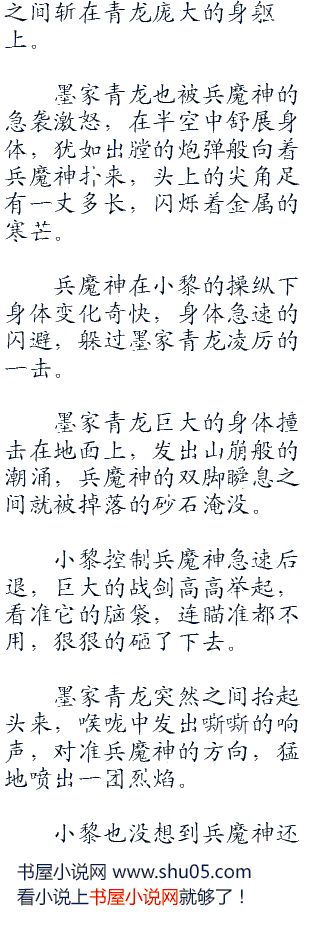 之间斩在青龙庞大的身躯
上。
墨家青龙也被兵魔神的
急袭激怒，在半空中舒展身
体，犹如出膛的炮弹般向着
兵魔神扑来，头上的尖角足
有一丈多长，闪烁着金属的
寒芒。
兵魔神在小黎的操纵下
身体变化奇快，身体急速的
闪避，躲过墨家青龙凌厉的
一击。
墨家青龙巨大的身体撞
击在地面上，发出山崩般的
潮涌，兵魔神的双脚瞬息之
间就被掉落的砂石淹没。
小黎控制兵魔神急速后
退，巨大的战剑高高举起，
看准它的脑袋，连瞄准都不
用，狠狠的砸了下去。
墨家青龙突然之间抬起
头来，喉咙中发出嘶嘶的响
声，对准兵魔神的方向，猛
地喷出一团烈焰。
小黎也没想到兵魔神还
书屋小说网 www.shu05.com
看小说上书屋小说网就够了！